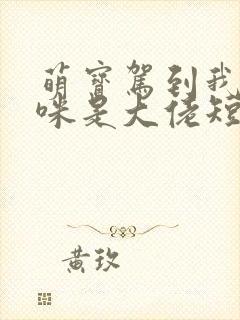 萌寳駕到我
咪是大佬短
黄玫